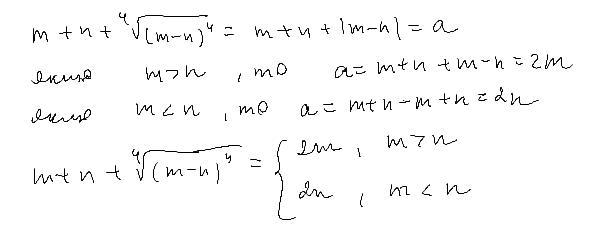 m + n + ⁴√(m-n)⁴ = m + n + |m-n| = a
якщо m > n , то a = m+n + m-n = 2m
якщо m < n , то a = m+n-m+n = 2n
m+n + ⁴√(m-n)⁴ = { 2m , m > n
2n , m < n